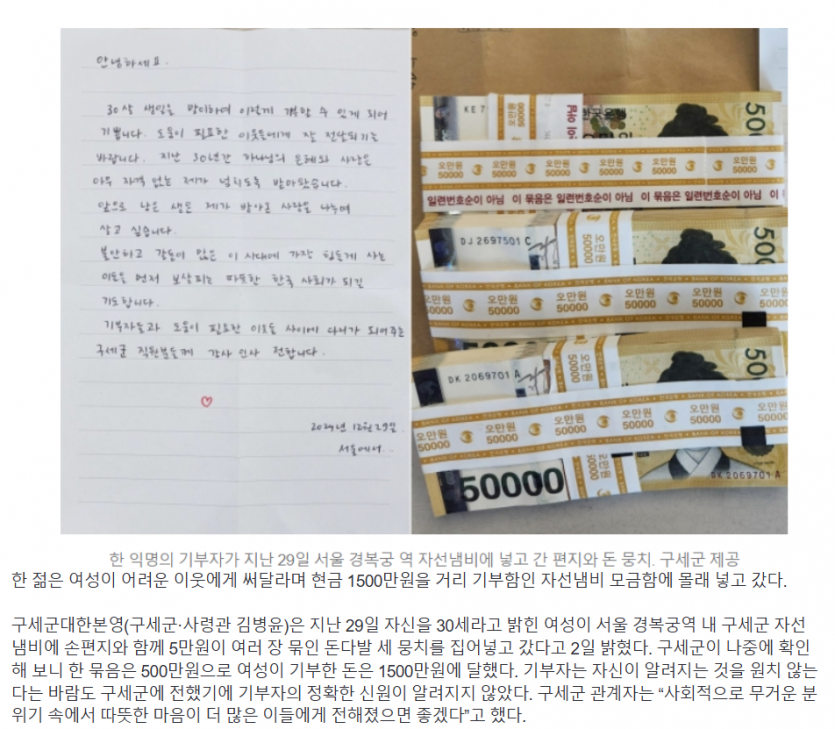 안녕하세요.
30살 생일을 맞이하여 이렇게 기부할 수 있게 되어
기쁩니다. 도움이 필요한 이웃들에게 잘 전달되기를
바랍니다. 지난 30년간 하나님의 은혜와 사랑을
아무 자격 없는 제가 넘치도록 받아왔습니다.
앞으로 남은 생은 제가 받아온 사랑을 나누며
살고 싶습니다.
불안하고 갈등이 많은 이 시대에 가장 힘들게 사는
이들을 먼저 보살피는 따뜻한 한국 사회가 되길
기도합니다.
기부자들과 도움이 필요한 이웃들 사이에 다리가 되어주는
구세군 직원분들께 감사 인사 전합니다.
2024년 12월 29일.
서울에서..
KE 7
오만원 50000
50
한국은행
오만원 50000 오만원 50000 오만원 50000 오만원 50000 오만원 50000
일련번호순이 아님 이 묶음은 일련번호순이 아님 이 묶음은 일련번호순이 아님
DJ 2697501 C
오만원 50000
500
BANK OF KOREA
오만원 50000 오만원 50000 오만원 50000 오만원 50000
DK 2069701 A
50
BANK OF KOREA
오만원 50000 오만원 50000 오만원 50000 오만원 50000
50000
DK 2069701 A
한 익명의 기부자가 지난 29일 서울 경복궁 역 자선냄비에 넣고 간 편지와 돈 뭉치. 구세군 제공
한 젊은 여성이 어려운 이웃에게 써달라며 현금 1500만원을 거리 기부함인 자선냄비 모금함에 몰래 넣고 갔다.
구세군대한본영(구세군·사령관 김병윤)은 지난 29일 자신을 30세라고 밝힌 여성이 서울 경복궁역 내 구세군 자선
냄비에 손편지와 함께 5만원이 여러 장 묶인 돈다발 세 뭉치를 집어넣고 갔다고 2일 밝혔다. 구세군이 나중에 확인
해 보니 한 묶음은 500만원으로 여성이 기부한 돈은 1500만원에 달했다. 기부자는 자신이 알려지는 것을 원치 않는
다는 바람도 구세군에 전했기에 기부자의 정확한 신원이 알려지지 않았다. 구세군 관계자는 “사회적으로 무거운 분
위기 속에서 따뜻한 마음이 더 많은 이들에게 전해졌으면 좋겠다”고 했다.